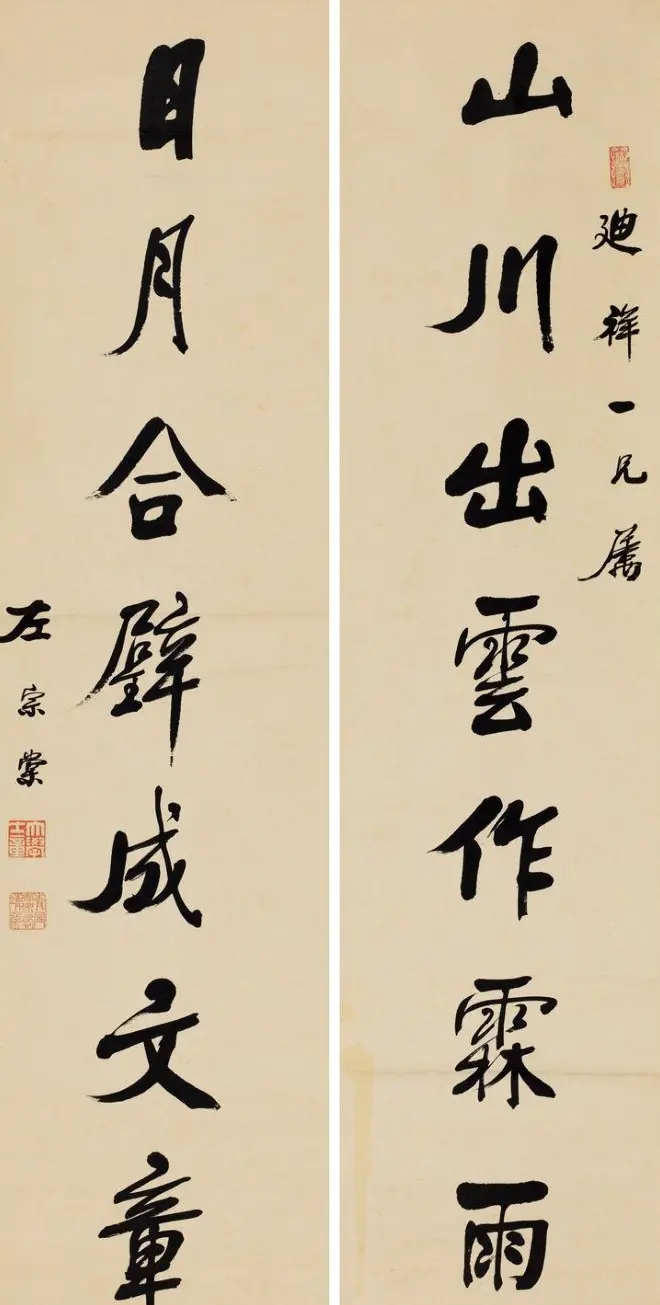 廸祥一兄属
山川出雲作霖雨
日月合璧成文章
左宗棠